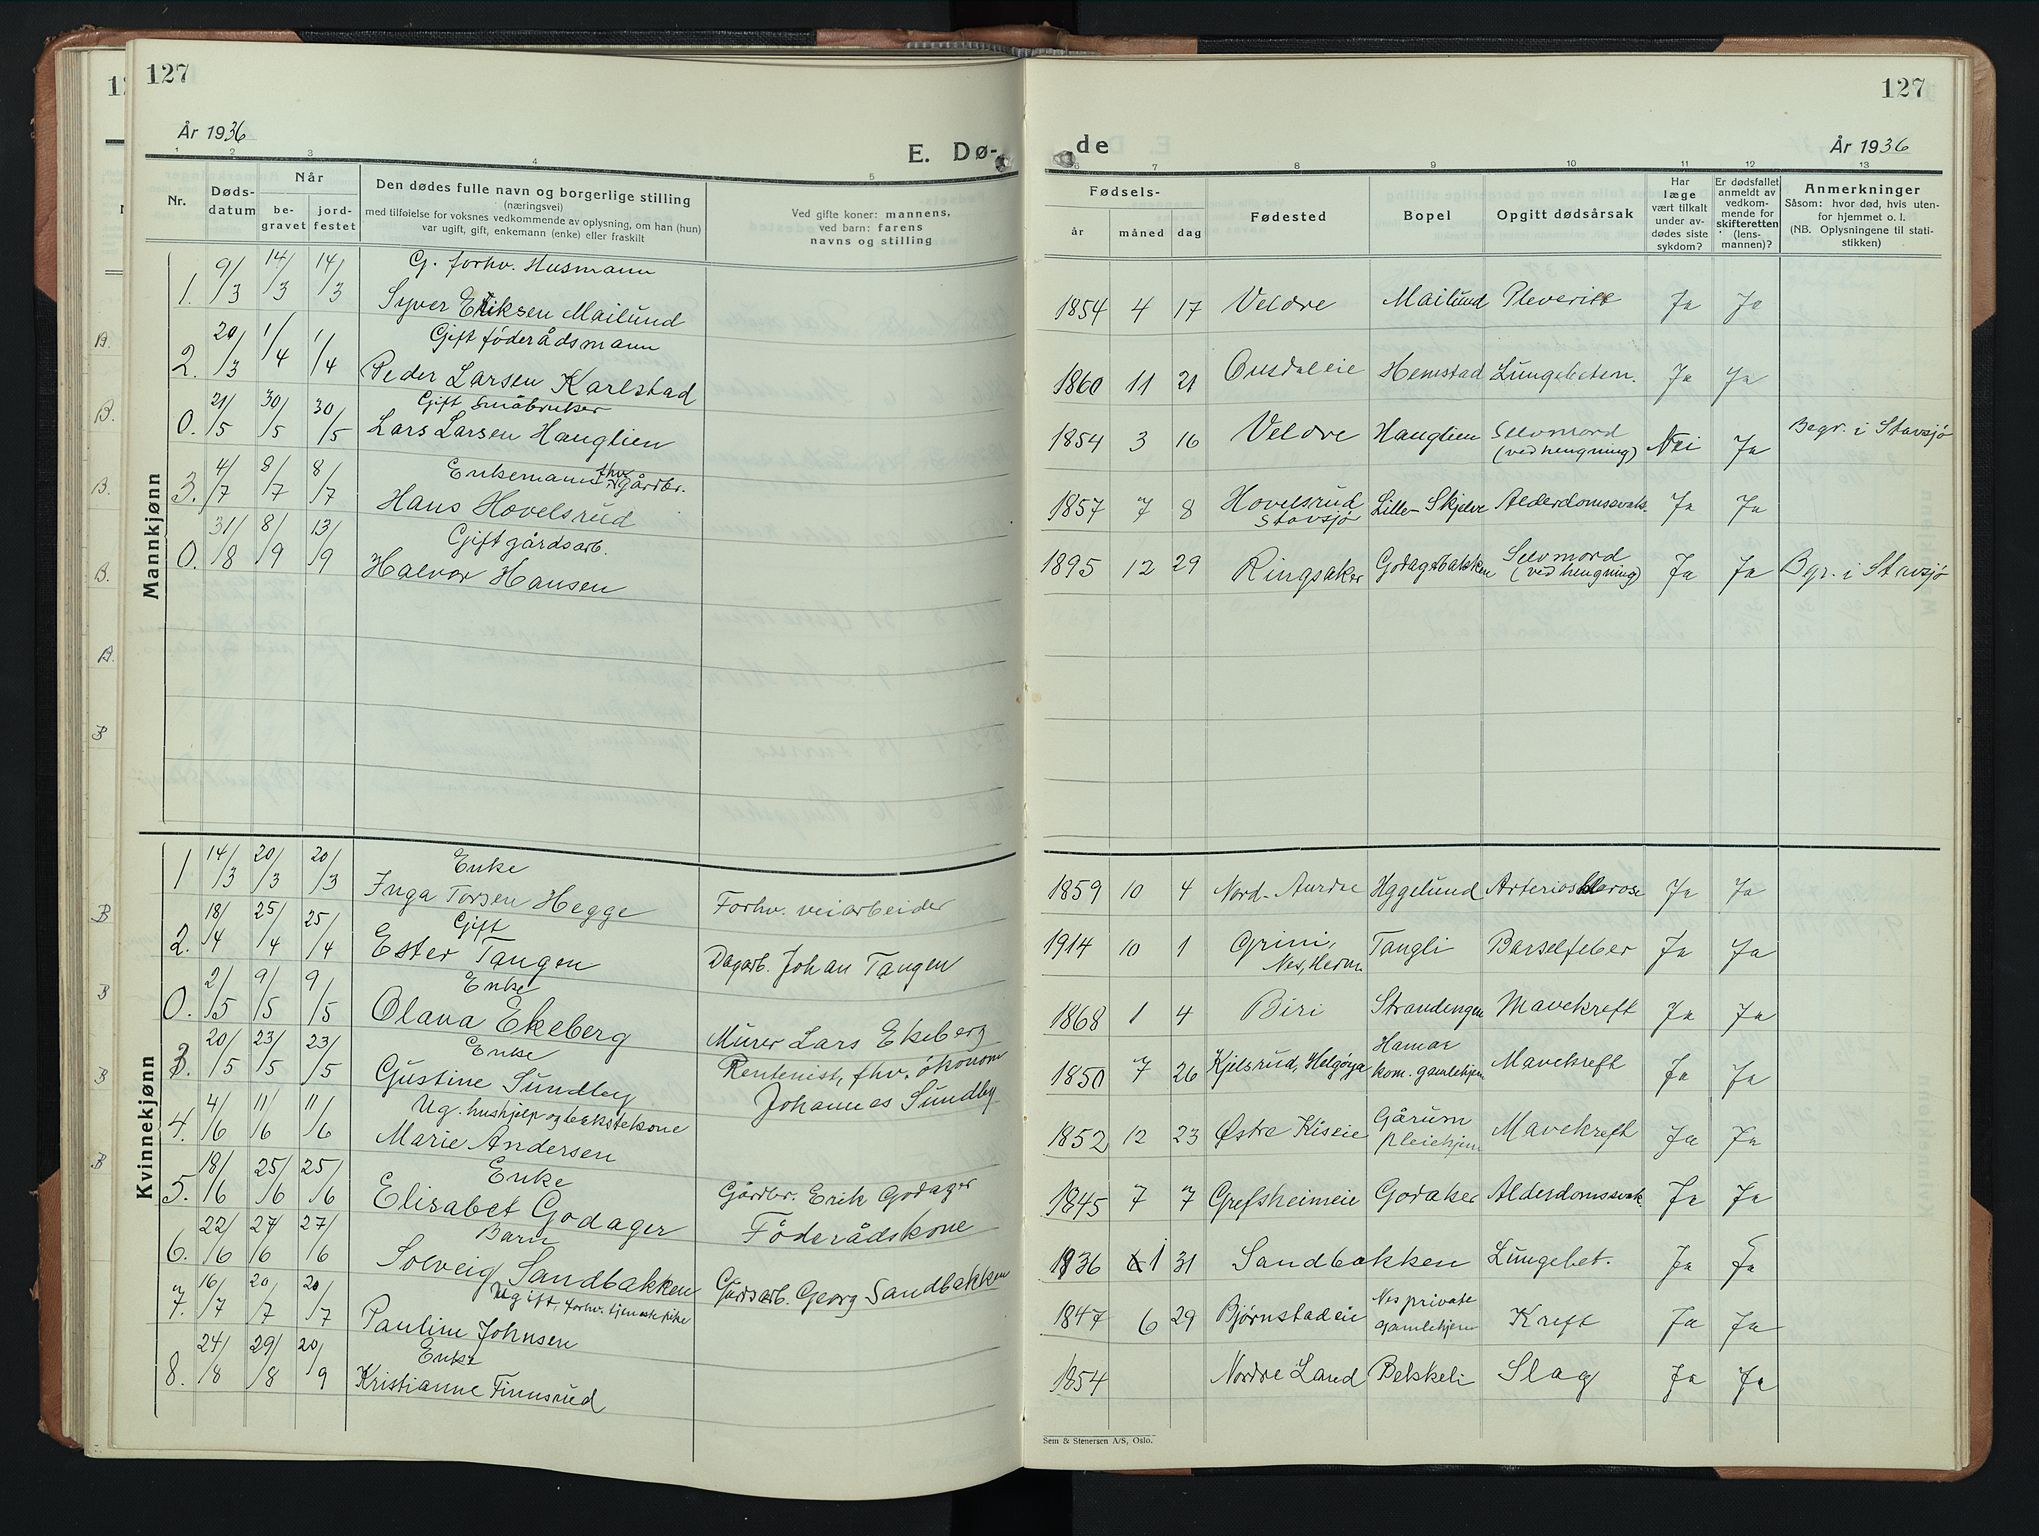 127
127
År 1936
E. Dø-
de
År 1936
1 2 3 4 5
6 7 8 9 10 11 12 13
Nr.
Døds-
datum
Når
be-
gravet
jord-
festet
Den dødes fulle navn og borgerlige stilling
(næringsvei)
med tilføielse for voksnes vedkommende av oplysning, om han (hun)
var ugift, gift, enkemann (enke) eller fraskilt
Ved gifte koner: mannens,
ved barn: farens
navns og stilling
Fødsels-
år måned dag
Fødested
Bopel
Opgitt dødsårsak
Har
læge
vært tilkalt
under av-
dødes siste
sykdom?
Er dødsfallet
anmeldt av
vedkom-
mende for
skifteretten
(lens-
mannen)?
Anmerkninger
Såsom: hvor død, hvis uten-
for hjemmet o. l.
(NB. Oplysningene til stati-
stikken)
Mannkjønn
G. forhv. Husmann
1. 9/3 14/3 14/3 Syver Eriksen Mailund 1854 4 17 Veldre Mailund Pleverit Ja Ja
Gift føderådsmann
2. 20/3 1/4 1/4 Peder Larsen Karlstad 1860 11 21 Hemstad Lungebeten. Ja Ja
Gift Småbruker
0. 21/5 30/5 30/5 Lars Larsen Hauglien 1854 3 16 Veldre Hauglien Selvmord (ved hengning) Nei Ja Begr. i Stavsjø
Enkemann fhv. Gårdbr.
3. 4/7 8/7 8/7 Hans Hovelsrud 1857 7 8 Hovelsrud Stavsjø Lille-Skjelve Alderdomssvak. Ja Ja
Gift gårdsarb.
0. 31/8 8/9 13/9 Halvor Hansen 1895 12 29 Ringsaker Godagsbakken Selvmord (ved hengning) Ja Ja Bgr. i Stavsjø
Kvinnekjønn
Enke
1 14/3 20/3 20/3 Inga Torsen Hegge Forhv. veiarbeider 1859 10 4 Nord-Aurdre Hggelund Arteriosklerose Ja Ja
Gift
2. 18/4 25/4 25/4 Ester Tangen Dagarb. Johan Tangen 1914 10 1 Grini, Nes, Hedm. Tangli Barselfeber Ja Ja
Enke
0. 2/5 9/5 9/5 Olava Ekeberg Murer Lars Ekeberg 1868 1 4 Biri Strandengen Mavekreft Ja Ja
Enke
3. 20/5 23/5 23/5 Gustine Sundby Rentenist, fhv. økonom Johannes Sundby 1850 7 26 Kjelsrud, Helgøya Hamar kom. gamlehjem Mavekreft Ja Ja
Ug. hushjelp og bakstekone
4. 4/6 11/6 11/6 Marie Andersen 1852 12 23 Østre Kiseie Gårum pleiehjem Mavekreft Ja Ja
Enke
5. 18/6 25/6 25/6 Elisabet Godager Gårdbr. Erik Godager Føderådskone 1845 7 7 Grefsheimeie Godaker Alderdomssvak. Ja Ja
Barn
6. 22/6 27/6 27/6 Solveig Sandbakken Gårdsarb. Georg Sandbakken 1936 1 31 Sandbakken Lungebet. Ja Ja
Ugift, forhv. tjenestepike
7. 16/7 20/7 20/7 Pauline Johnsen 1847 6 29 Bjørnstadeie Nes private gamlehjem Kreft Ja Ja
Enke
8. 24/8 29/8 20/9 Kristianne Finnsrud 1854 Nordre Land Belskeli Slag Ja Ja
Sem & Stenersen A/S, Oslo.